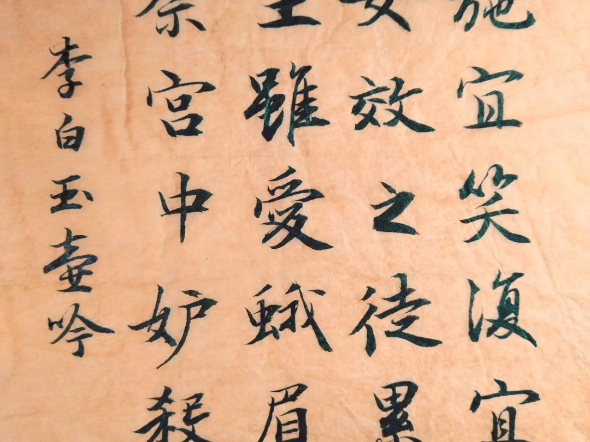 施宜笑復宜
女效之徒累
王雖愛蛾眉
奈宮中妒殺
李白玉壺吟